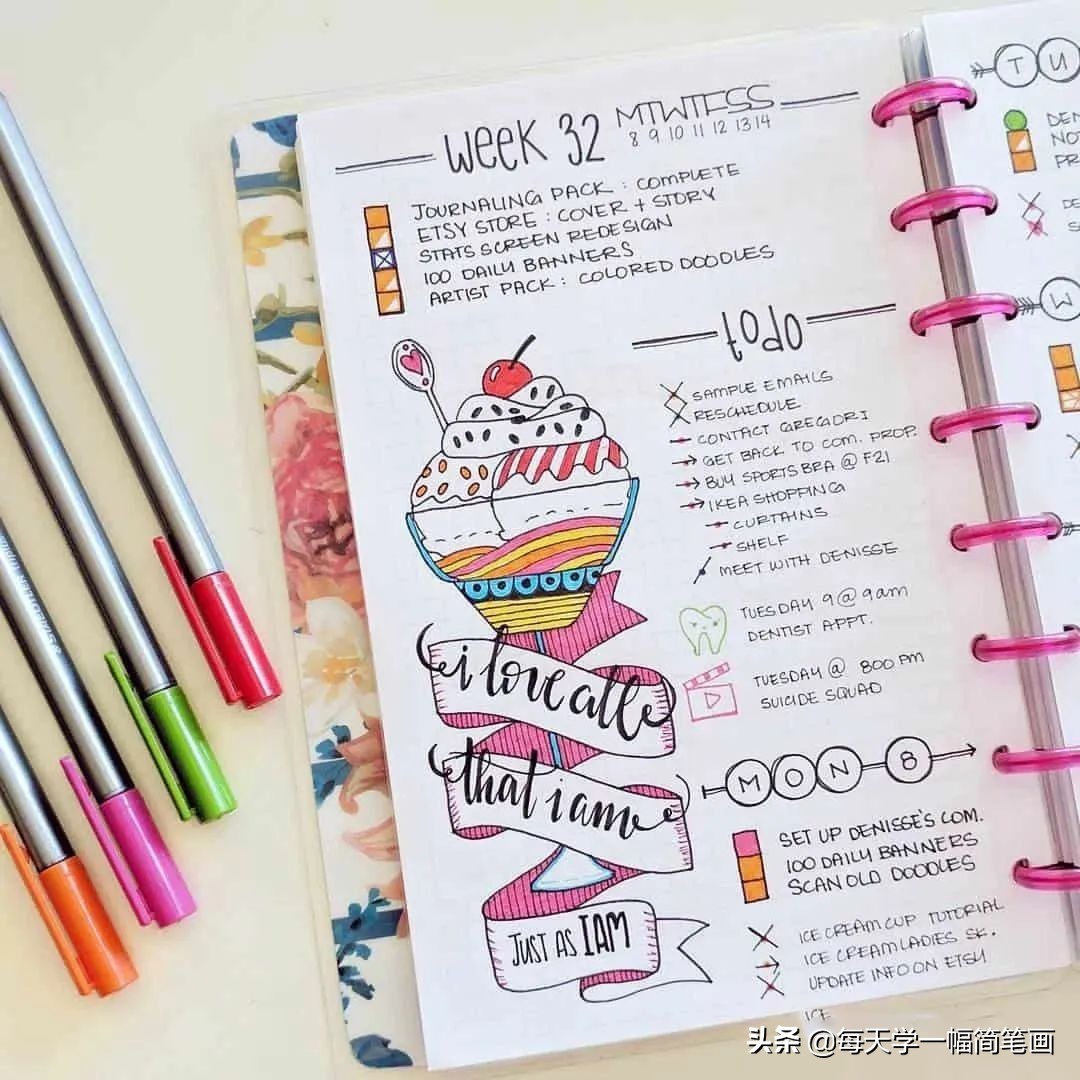 WEEK 32
MTWTFSS
8 9 10 11 12 13 14
JOURNALING PACK : COMPLETE
ETSY STORE : COVER + STORY
STATS SCREEN REDESIGN
100 DAILY BANNERS
ARTIST PACK : COLORED DOODLES
todo
SAMPLE EMAILS
RESCHEDULE
CONTACT GREGORI
GET BACK TO COM. PROP.
BUY SPORTS BRA @ F21
IKEA SHOPPING
CURTAINS
SHELF
MEET WITH DENISSE
TUESDAY 9 @ 9am
DENTIST APPT.
TUESDAY @ 800 PM
SUICIDE SQUAD
i love all
that i am
JUST AS I AM
MON 8
SET UP DENISSE'S COM.
100 DAILY BANNERS
SCAN OLD DOODLES
ICE CREAM CUP TUTORIAL
ICE CREAM LADIES SK.
UPDATE INFO ON ETSY
ICE
TU
DEN
NO
PR
DE
S
W
头条 @每天学一幅简笔画